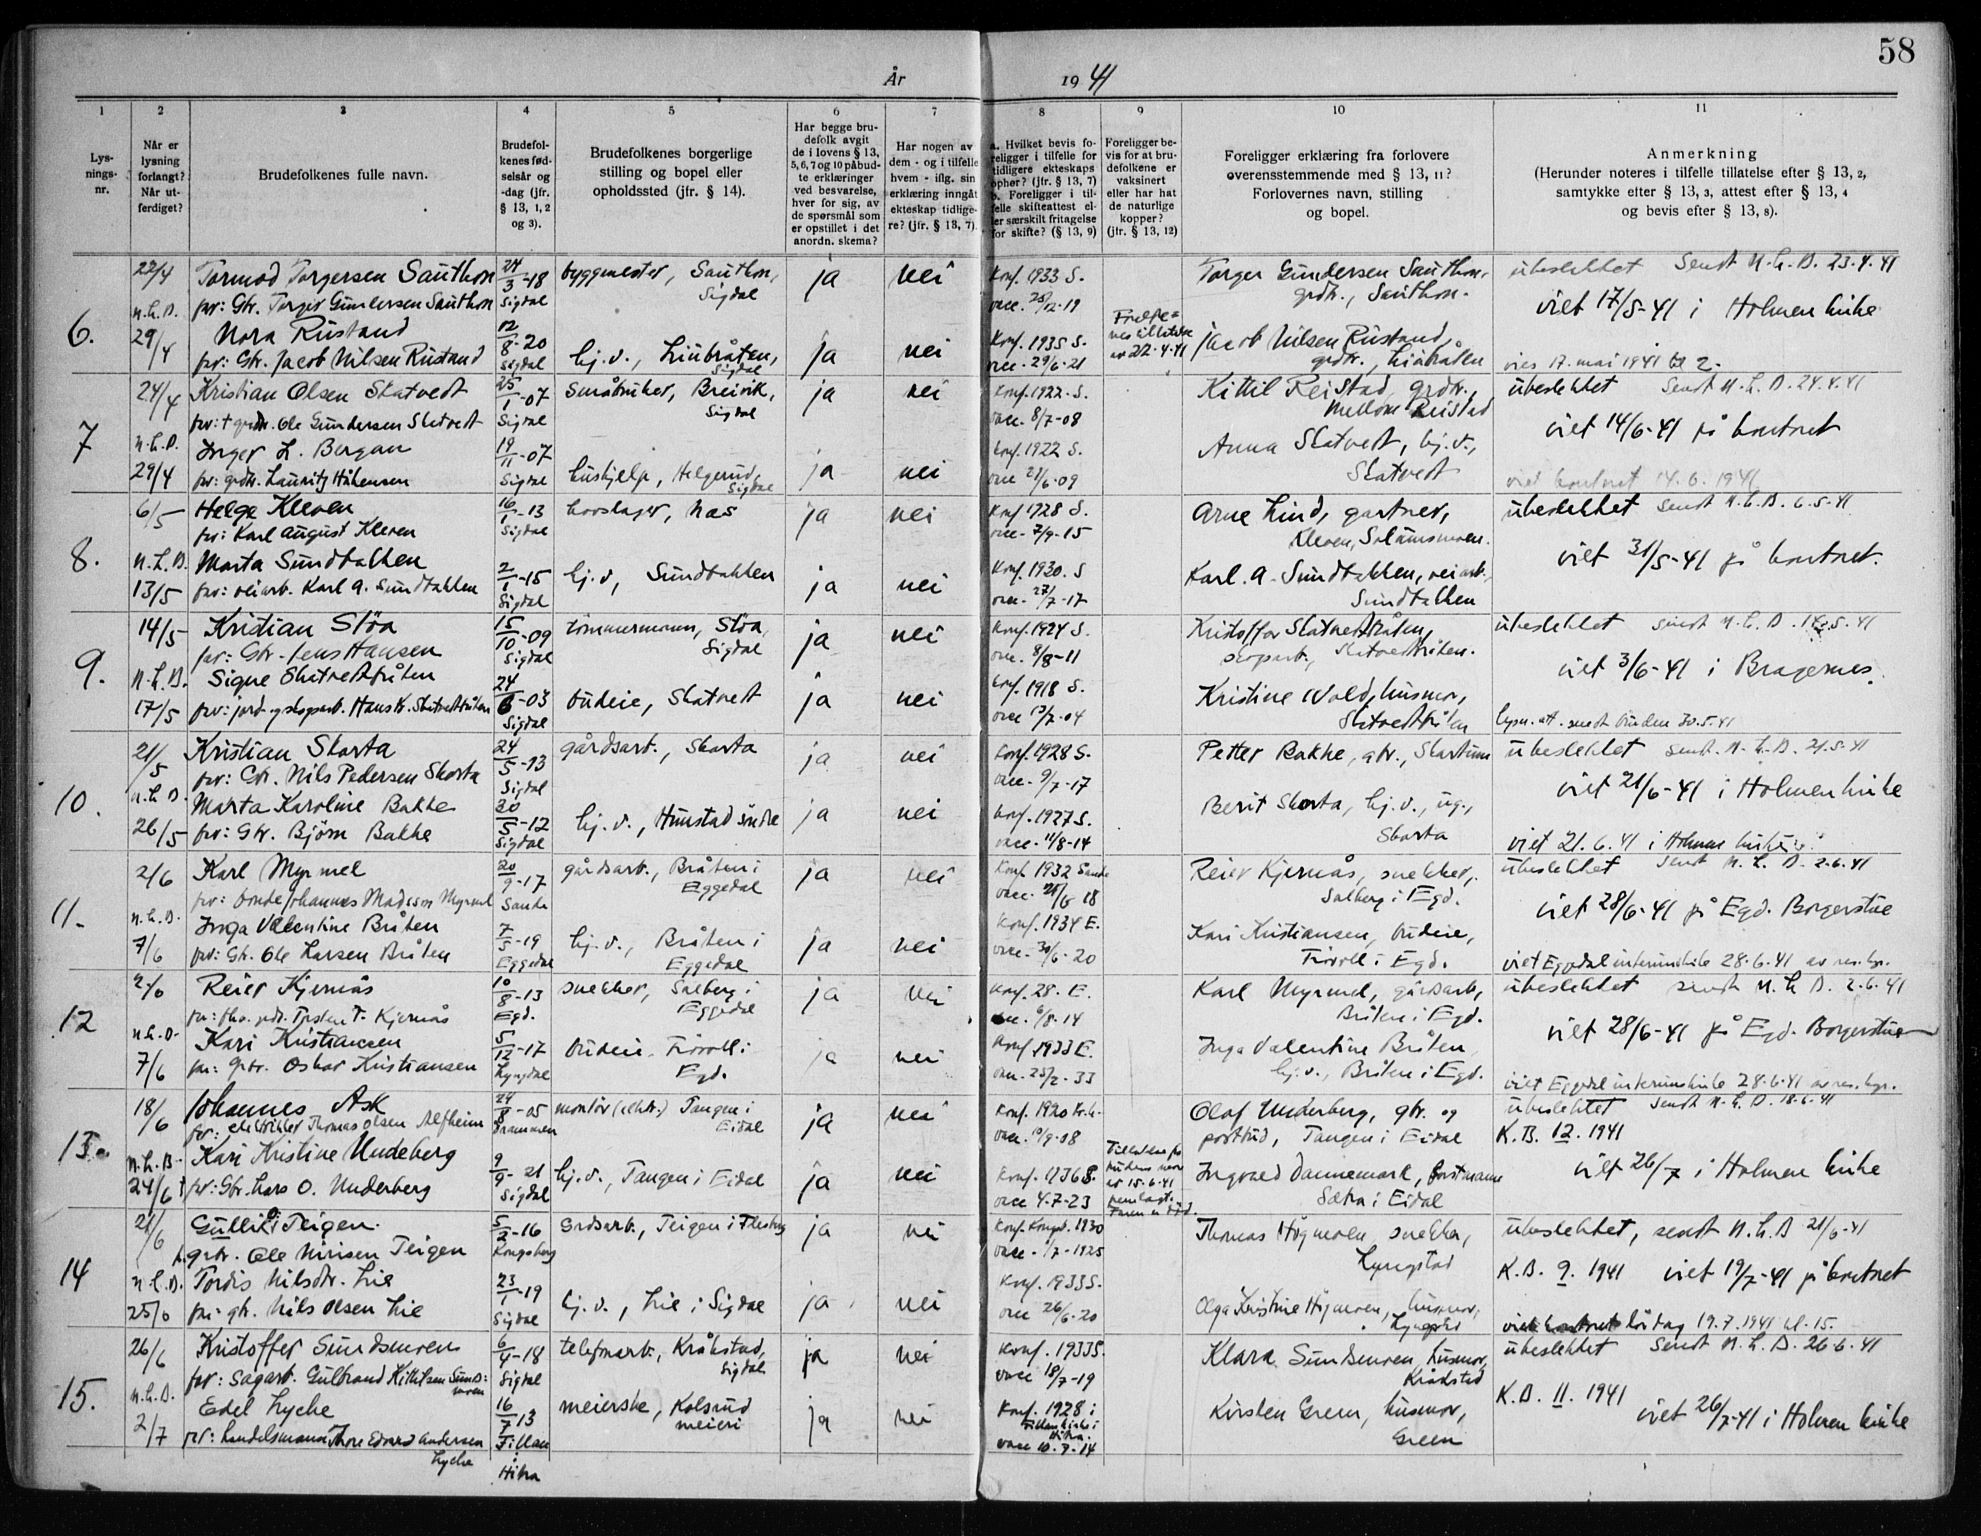 58
År 1941
1
Lysnings-
nr.
2
Når er
lysning
forlangt?
Når ut-
ferdiget?
3
Brudefolkenes fulle navn.
4
Brudefol-
kenes fød-
selsår og
-dag (jfr.
§ 13, 1, 2
og 3).
5
Brudefolkenes borgerlige
stilling og bopel eller
opholdssted (jfr. § 14).
6
Har begge bru-
defolk avgit
de i lovens § 13,
5, 6, 7 og 10 påbud-
te erklæringer
ved besvarelse,
hver for sig, av
de spørsmål som
er opstillet i det
anordn. skema?
7
Har nogen av
dem - og i tilfelle
hvem - iflg. sin
erklæring inngåt
ekteskap tidlige-
re? (jfr. § 13, 7).
8
a. Hvilket bevis fo-
religger i tilfelle for
tidligere ekteskaps
ophør? (jfr. § 13, 7)
b. Foreligger i til-
felle skifteattest el-
ler særskilt fritagelse
for skifte? (§ 13, 9)
9
Foreligger be-
vis for at bru-
defolkene er
vaksinert
eller har hat
de naturlige
kopper?
(jfr. § 13, 12)
10
Foreligger erklæring fra forlovere
overensstemmende med § 13, 11?
Forlovernes navn, stilling
og bopel.
11
Anmerkning
(Herunder noteres i tilfelle tillatelse efter § 13, 2,
samtykke efter § 13, 3, attest efter § 13, 4
og bevis efter § 13, 8).
6.
22/4 Tormod Torgersen Sauthon 24/3-18 byggmester, Sauthon, ja nei Konf. 1933 S. Torger Gundersen Sauthon, ubeslektet Sendt N.L.D. 23.4.41
N.L.D. far: Gbr. Torger Gundersen Sauthon Sigdal Sigdal vacc. 28/12-19 grdbr., Sauthon. viet 17/5-41 i Holmen kirke
29/4 Nora Rustand 12/8-20 hj.v., Liubråten, ja nei Konf. 1935 S. av 22-4-41 Jacob Nilsen Rustand,
far: Gbr. Jacob Nilsen Rustand Sigdal Sigdal vacc. 29/6-21 grdbr., Liubråten vies 17. mai 1941 kl 2.
7
24/4 Kristian Olsen Skatvedt 25/1-07 småbruker, Breivik, ja nei Konf. 1922. S. Kittil Reistad, grdbr., ubeslektet Sendt N.L.D. 24.4.41
far: † grdbr. Ole Gundersen Skatvedt Sigdal Sigdal vacc. 8/7-08 Mellom Reistad viet 14/6-41 på kontoret
N.L.D. Inger L. Bergan 19/11-07 Konf. 1922 S. Anna Skatvedt, hj.v.,
29/4 far: grdbr. Lauritz Håkensen Sigdal hushjelp, Helgerud, Sigdal ja nei vacc 21/6-09 Skatvedt viet kontoret 14.6.1941
8.
6/5 Helge Kleven 16/1-13 hovslager, Nes ja nei Konf 1928 S. Arne Lind, gartner, ubeslektet sendt N.L.D. 6.5.41
far: Karl August Kleven Sigdal vacc- 7/9-15 Kleven, viet 31/5-41 på kontoret.
N.L.D. Marta Sundbakken 2/1-15 hj.v, Sundbakken ja nei Konf. 1930. S Karl A. Sundbakken, veiarb.,
13/5 far: veiarb. Karl A. Sundbakken Sigdal vacc- 27/7-17 Sundbakken
9.
14/5 Kristian Støa 15/10-09 tømmermann, Støa, ja nei Konf. 1924 S. Kristoffer Skatvedtbråten, ubeslektet sendt N.L.D. 14.5.41
far: Gbr. Jens Hansen Sigdal Sigdal vacc. 8/8-11 skogsarb., Skatvedtbråten. viet 3/6-41 i Bragernes.
N.L.D. Signe Skatvedtbråten 24/6-03 budeie, Skatvedt ja nei Konf. 1918 S. Kristine Wold, husmor,
17/5 far: jord- og skogsarb. Hans K. Skatvedtbråten Sigdal vacc 13/7-04 Skatvedtbråten lysn. att. sendt bruden 30.5.41
10.
21/5 Kristian Skarta 24/5-13 gårdsarb., Skarta ja nei Konf. 1928 S. Petter Bakke, gbr., ubeslektet sendt. N.L.D. 21.5.41
far: Gbr. Nils Pedersen Skarta Sigdal vacc- 9/7-17 viet 21/6-41 i Holmen kirke
N.L.D. Marta Karoline Bakke 20/5-12 hj.v., Hunstad søndre ja nei Konf. 1927 S. Berit Skarta, hj.v., ug.,
26/5 far: Gbr. Bjørn Bakke Sigdal vacc. 11/8-14 Skarta viet 21.6.41 i Holmen kirke
11.
2/6 Karl Myrmel 20/9-17 gårdsarb., Bråten i ja nei Konf 1932 Sande Reier Kjernås, snekker, ubeslektet sendt N.L.D. 2.6.41
far: bonde Johannes Madsson Myrmel Sande Eggedal Salberg i Egd. viet 28/6-41 på Egd. Borgerstue
N.L.D. Inga Valentine Bråten 7/5-19 hj.v., Bråten i ja nei Konf. 1934 E. Kari Kristiansen, budeie,
7/6 far: Gbr. Ole Larsen Bråten Eggedal Eggedal vacc. 30/6-20 i Egd. viet Eggedal interimskirke 28.6.41 av res.kap.
12
2/6 Reier Kjernås 10/8-13 snekker, Salberg i ja nei Konf. 28. E. Karl Myrmel, gårdsarb, ubeslektet sendt N.L.D. 2.6.41
Torsten T. Kjernås Egd. Eggedal vacc. 6/8-14 Bråten i Egd. viet 28/6-41 på Egd. Borgerstue
N.L.D. Kari Kristiansen 5/12-17 budeie, Egd. ja nei Konf. 1933 E. Inga Valentine Bråten,
7/6 far: Gbr. Oskar Kristiansen Lyngdal vacc. 25/2-33 hj.v., Bråten i Egd. viet Eggedal interimskirke 28.6.41 av res.kap.
13.
18/6 Johannes Ask 24/8-05 montør (elektr.) Tangen i ja nei Konf. 1920 Olaf Underberg, gbr. og ubeslektet sendt N.L.D. 18.6.41
far: elektriker Thomas Olsen Alfheim Drammen Eidal vacc. 10/9-08 postbud, Tangen i Eidal K.B. 12. 1941
N.L.D. Kari Kristine Underberg 9/9-21 hj.v., Tangen i Eidal ja nei Konf. 1936 S. Ingvald Dannemark, forstmann viet 26/7 i Holmen kirke
24/6 † far: Gbr. Lars O. Underberg Sigdal vacc 4-7-23 Sætra i Eidal
14
21/6 Gullik Teigen. 5/2-16 Grdsarb., Teigen i Flesberg ja nei Konf. Kongsb. 1930 Thomas Høgmoen, snekker, ubeslektet, sendt N.L.D 21/6-41
gbr. Ole Nirisen Teigen Kongsberg vacc. 1/7-1925 Lyngstad K.B. 9. 1941 viet 19/7-41 på kontoret
N.L.D. Tordis Nilsdtr. Lie 23/1-19 hj.v., Lie i Sigdal ja nei Konf. 1933 S. Olga Kristine Høgmoen, husmor,
25/6 far: gbr. Nils Olsen Lie Sigdal vacc 26/6-20 Lyngstad viet kontoret lørdag 19.7.1941 kl. 15.
15.
26/6 Kristoffer Sundsmoren 6/4-18 telefonarb., Kråkstad, ja nei Konf. 1933 S. Klara Sundsmoren, husmor, ubeslektet Sendt N.L.D. 26.6.41
far: Sagarb. Gulbrand Kittilsen Sundsmoren Sigdal Sigdal vacc 18/7-19 Kråkstad
N.L.D. Edel Lyche 16/7 13 meierske, Kolsrud ja nei Konf. 1928 i Kirsten Green, husmor, K.B. 11. 1941
2/7 far: handelsmann Thore Edvard Andersen Lyche Fillan i Hitra meieri vacc 10.7.14 Green viet 26/7-41 i Holmen kirke